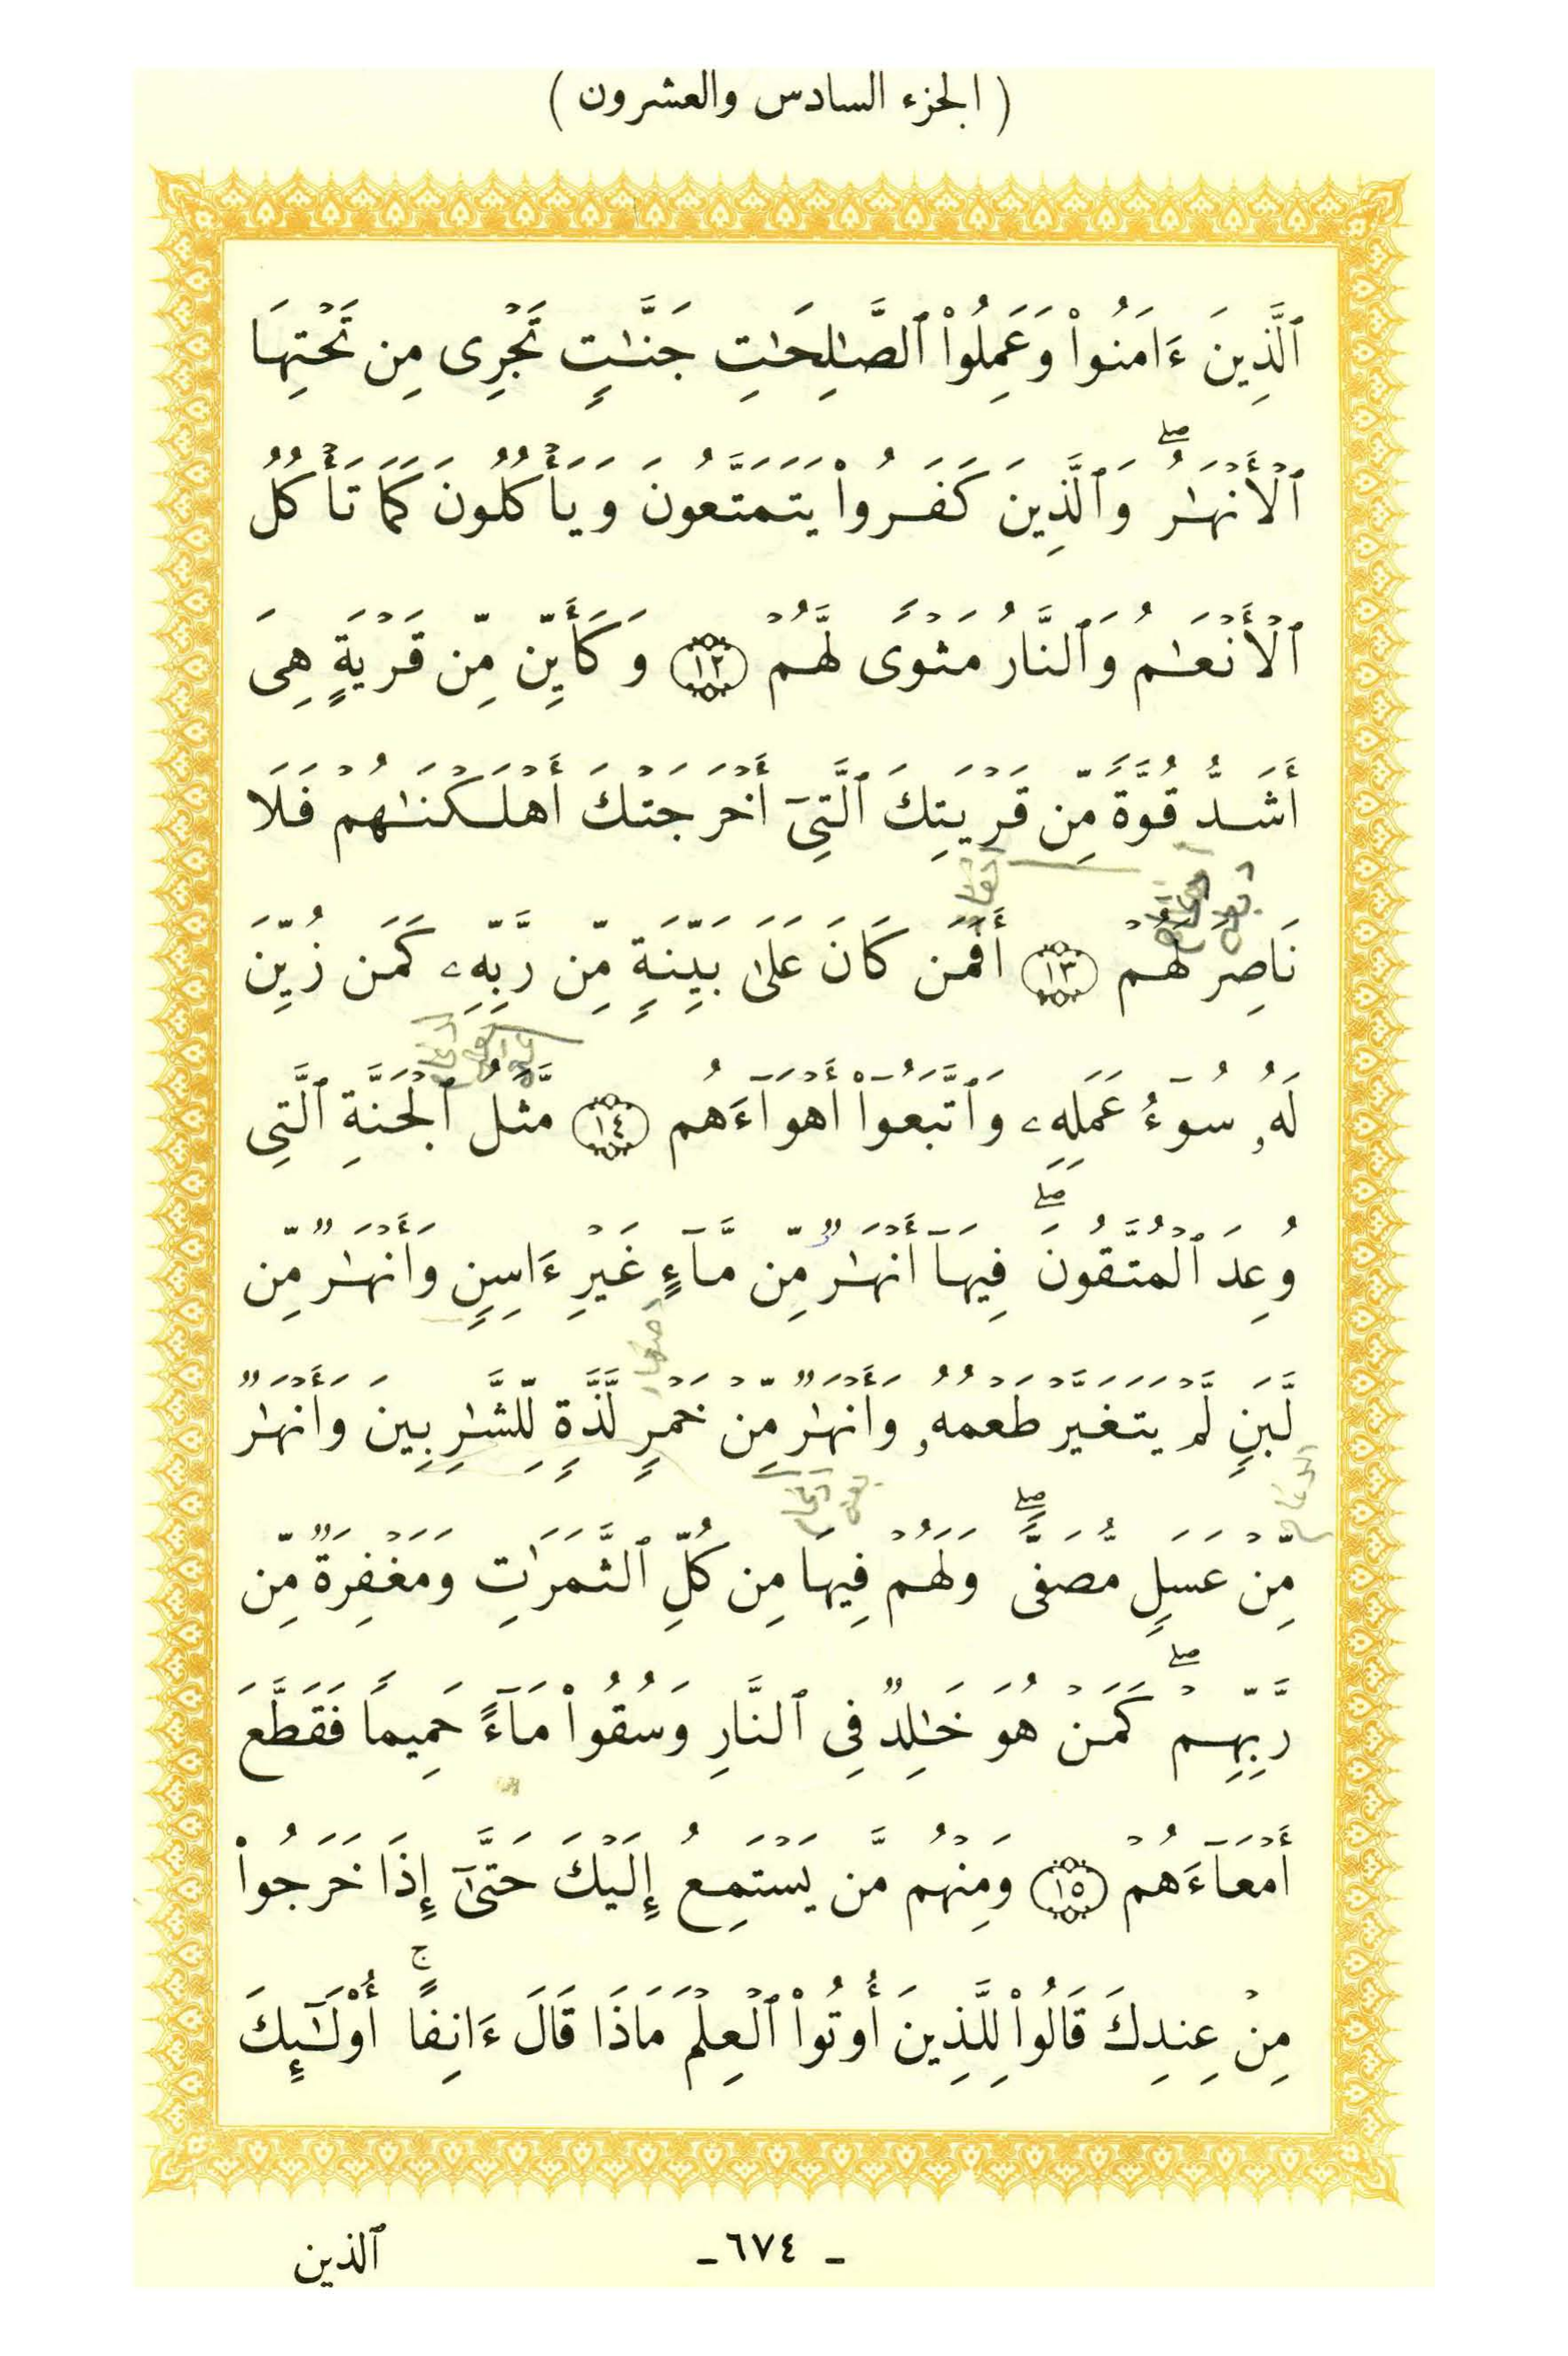 ( الجزء السادس والعشرون )
ٱلَّذِينَ ءَامَنُواْ وَعَمِلُواْ ٱلصَّـٰلِحَـٰتِ جَنَّـٰتٍ تَجۡرِى مِن تَحۡتِهَا
ٱلۡأَنۡهَـٰرُۖ وَٱلَّذِينَ كَفَرُواْ يَتَمَتَّعُونَ وَيَأۡكُلُونَ كَمَا تَأۡكُلُ
ٱلۡأَنۡعَـٰمُ وَٱلنَّارُ مَثۡوًى لَّهُمۡ ١٢ وَكَأَيِّن مِّن قَرۡيَةٍ هِىَ
أَشَدُّ قُوَّةً مِّن قَرۡيَتِكَ ٱلَّتِىٓ أَخۡرَجَتۡكَ أَهۡلَكۡنَـٰهُمۡ فَلَا
نَاصِرَ لَهُمۡ ١٣ أَفَمَن كَانَ عَلَىٰ بَيِّنَةٍ مِّن رَّبِّهِۦ كَمَن زُيِّنَ
لَهُۥ سُوٓءُ عَمَلِهِۦ وَٱتَّبَعُوٓاْ أَهۡوَآءَهُم ١٤ مَّثَلُ ٱلۡجَنَّةِ ٱلَّتِى
وُعِدَ ٱلۡمُتَّقُونَۖ فِيهَآ أَنۡهَـٰرٌ مِّن مَّآءٍ غَيۡرِ ءَاسِنٍ وَأَنۡهَـٰرٌ مِّن
لَّبَنٍ لَّمۡ يَتَغَيَّرۡ طَعۡمُهُۥ وَأَنۡهَـٰرٌ مِّنۡ خَمۡرٍ لَّذَّةٍ لِّلشَّـٰرِبِينَ وَأَنۡهَـٰرٌ
مِّنۡ عَسَلٍ مُّصَفًّىۖ وَلَهُمۡ فِيهَا مِن كُلِّ ٱلثَّمَرَٰتِ وَمَغۡفِرَةٌ مِّن
رَّبِّهِمۡۖ كَمَنۡ هُوَ خَـٰلِدٌ فِى ٱلنَّارِ وَسُقُواْ مَآءً حَمِيمًا فَقَطَّعَ
أَمۡعَآءَهُمۡ ١٥ وَمِنۡهُم مَّن يَسۡتَمِعُ إِلَيۡكَ حَتَّىٰٓ إِذَا خَرَجُواْ
مِنۡ عِندِكَ قَالُواْ لِلَّذِينَ أُوتُواْ ٱلۡعِلۡمَ مَاذَا قَالَ ءَانِفًاۚ أُوْلَـٰٓئِكَ
ـ ٦٧٤ ـ
ٱلذين